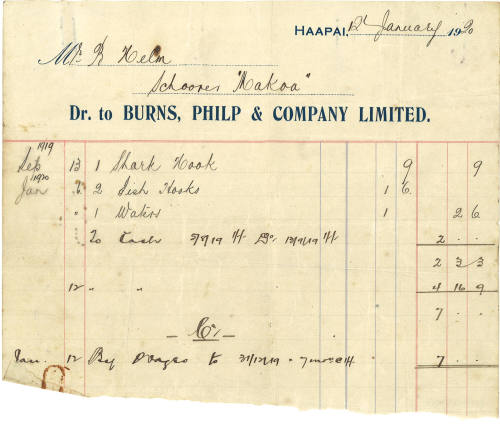 HAAPAI, 12 January 1920
Mr. R Helm
Schooner "Makoa"
Dr. to BURNS, PHILP & COMPANY LIMITED.
1919
Sep 13 1 Shark Hook 9 9
1920
Jan 7 2 Fish Hooks 1 6
" 1 Waters 1 2 6
To Cash 5/9/19 13/9/19 2 . .
2 3 3
12 " " 4 16 9
7 . .
Cr
Jan. 12 By Wages to 31/12/19 7 7 . .